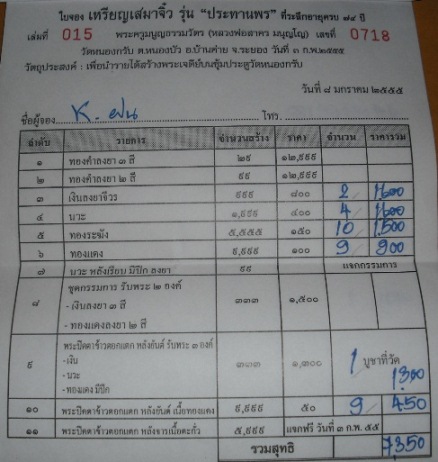 ใบจอง เหรียญเสมาจิ๋ว รุ่น “ประทานพร” ที่ระลึกอายุครบ ๗๔ ปี
เล่มที่ 015 พระครูมนูญธรรมวัตร (หลวงพ่อสาคร มนุญโญ) เลขที่ 0718
วัดหนองกรับ ต.หนองบัว อ.บ้านค่าย จ.ระยอง วันที่ ๓ ก.พ.๒๕๕๕
วัตถุประสงค์ : เพื่อนำรายได้สร้างพระเจดีย์บนซุ้มประตูวัดหนองกรับ
วันที่ ๘ มกราคม ๒๕๕๕
ชื่อผู้จอง K. ฝน โทร.
ลำดับ รายการ จำนวนสร้าง ราคา จำนวน ราคารวม
๑ ทองคำลงยา ๓ สี ๒๙ ๑๒,๙๙๙
๒ ทองคำลงยา ๒ สี ๙๙ ๑๒,๙๙๙
๓ เงินลงยาจีวร ๙๙๙ ๘๐๐ 2 1,600
๔ นวะ ๑,๙๙๙ ๔๐๐ 4 1,600
๕ ทองระฆัง ๕,๕๕๕ ๑๕๐ 10 1,500
๖ ทองแดง ๙,๙๙๙ ๑๐๐ 9 900
๗ นวะ หลังเรียบ มีปีก ลงยา ๙๙ แจกกรรมการ
๘ ชุดกรรมการ รับพระ ๒ องค์ ๓๓๓ ๑,๕๐๐
- เงินลงยา ๓ สี
- ทองแดงลงยา ๒ สี
๙ พระปิดตาข้าวตอกแตก หลังยันต์ รับพระ ๓ องค์ ๓๓๓ ๑,๓๐๐ 1 บูชาที่วัด 1300
- เงิน
- นวะ
- ทองแดง มีปีก
๑๐ พระปิดตาข้าวตอกแตก หลังยันต์ เนื้อทองแดง ๙,๙๙๙ ๕๐ 9 450
๑๑ พระปิดตาข้าวตอกแตก หลังจารเนื้อตะกั่ว ๕,๙๙๙ แจกฟรี วันที่ ๓ ก.พ. ๕๕
รวมสุทธิ 7,350